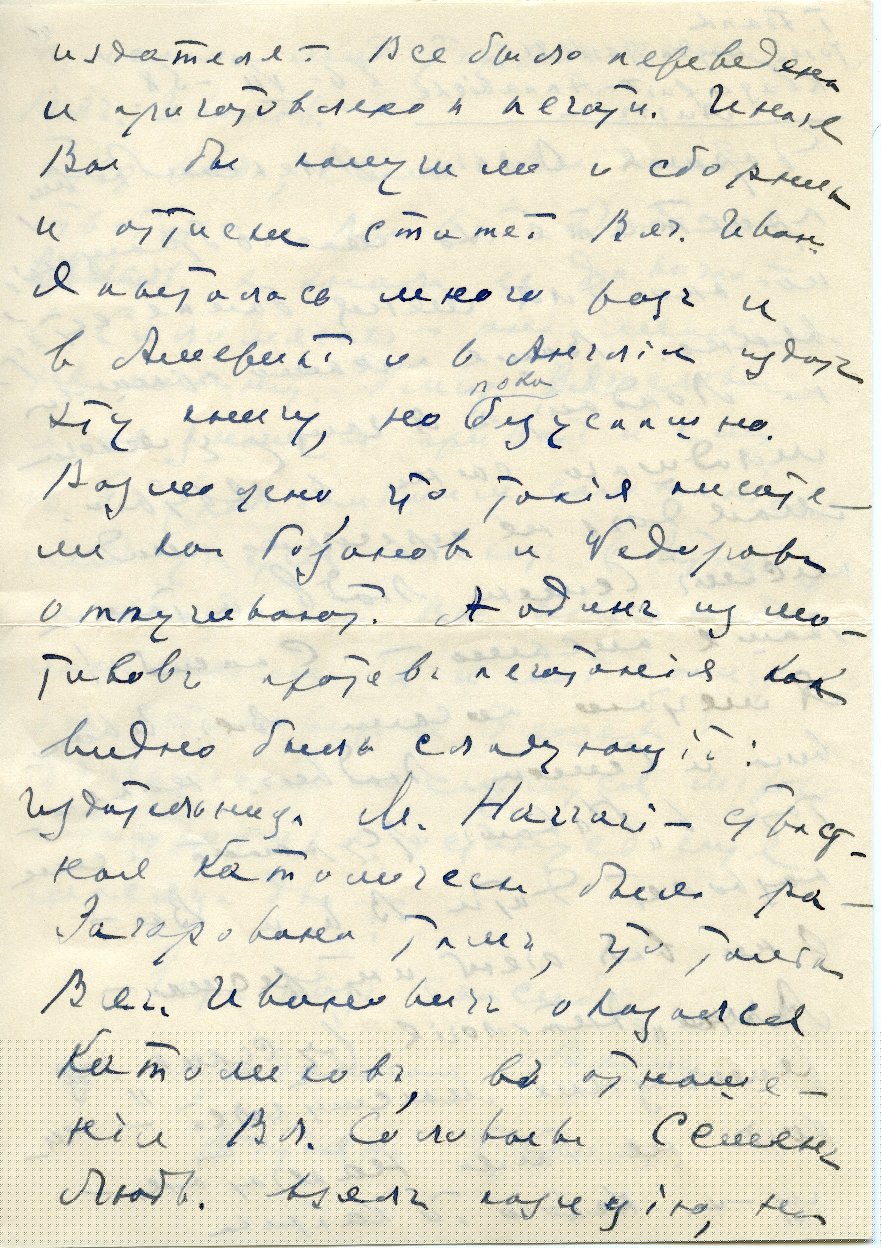 издателя. Все было переведено
и приготовлено к печати. Иначе
Вы бы получили и сборник
и оттиски статей Вяч. Иван.
Я пыталась много разъ и
в Америкѣ и в Англіи издать
эту книгу, но пока безуспешно.
Возможно, что такія писате-
ли как Розановъ и Федоровъ
отпугивают. А одинъ из мо-
тивовъ противъ печатанія как
видно былъ следующій:
издательница M. Harrari – страст-
ная Католичесн была ра-
зачарована тѣмъ, что только
Вяч. Ивановичъ оказался
Католиковъ, въ отноше-
ніи Вл. Соловьева Семенъ
Людв. взялъ позицію, не